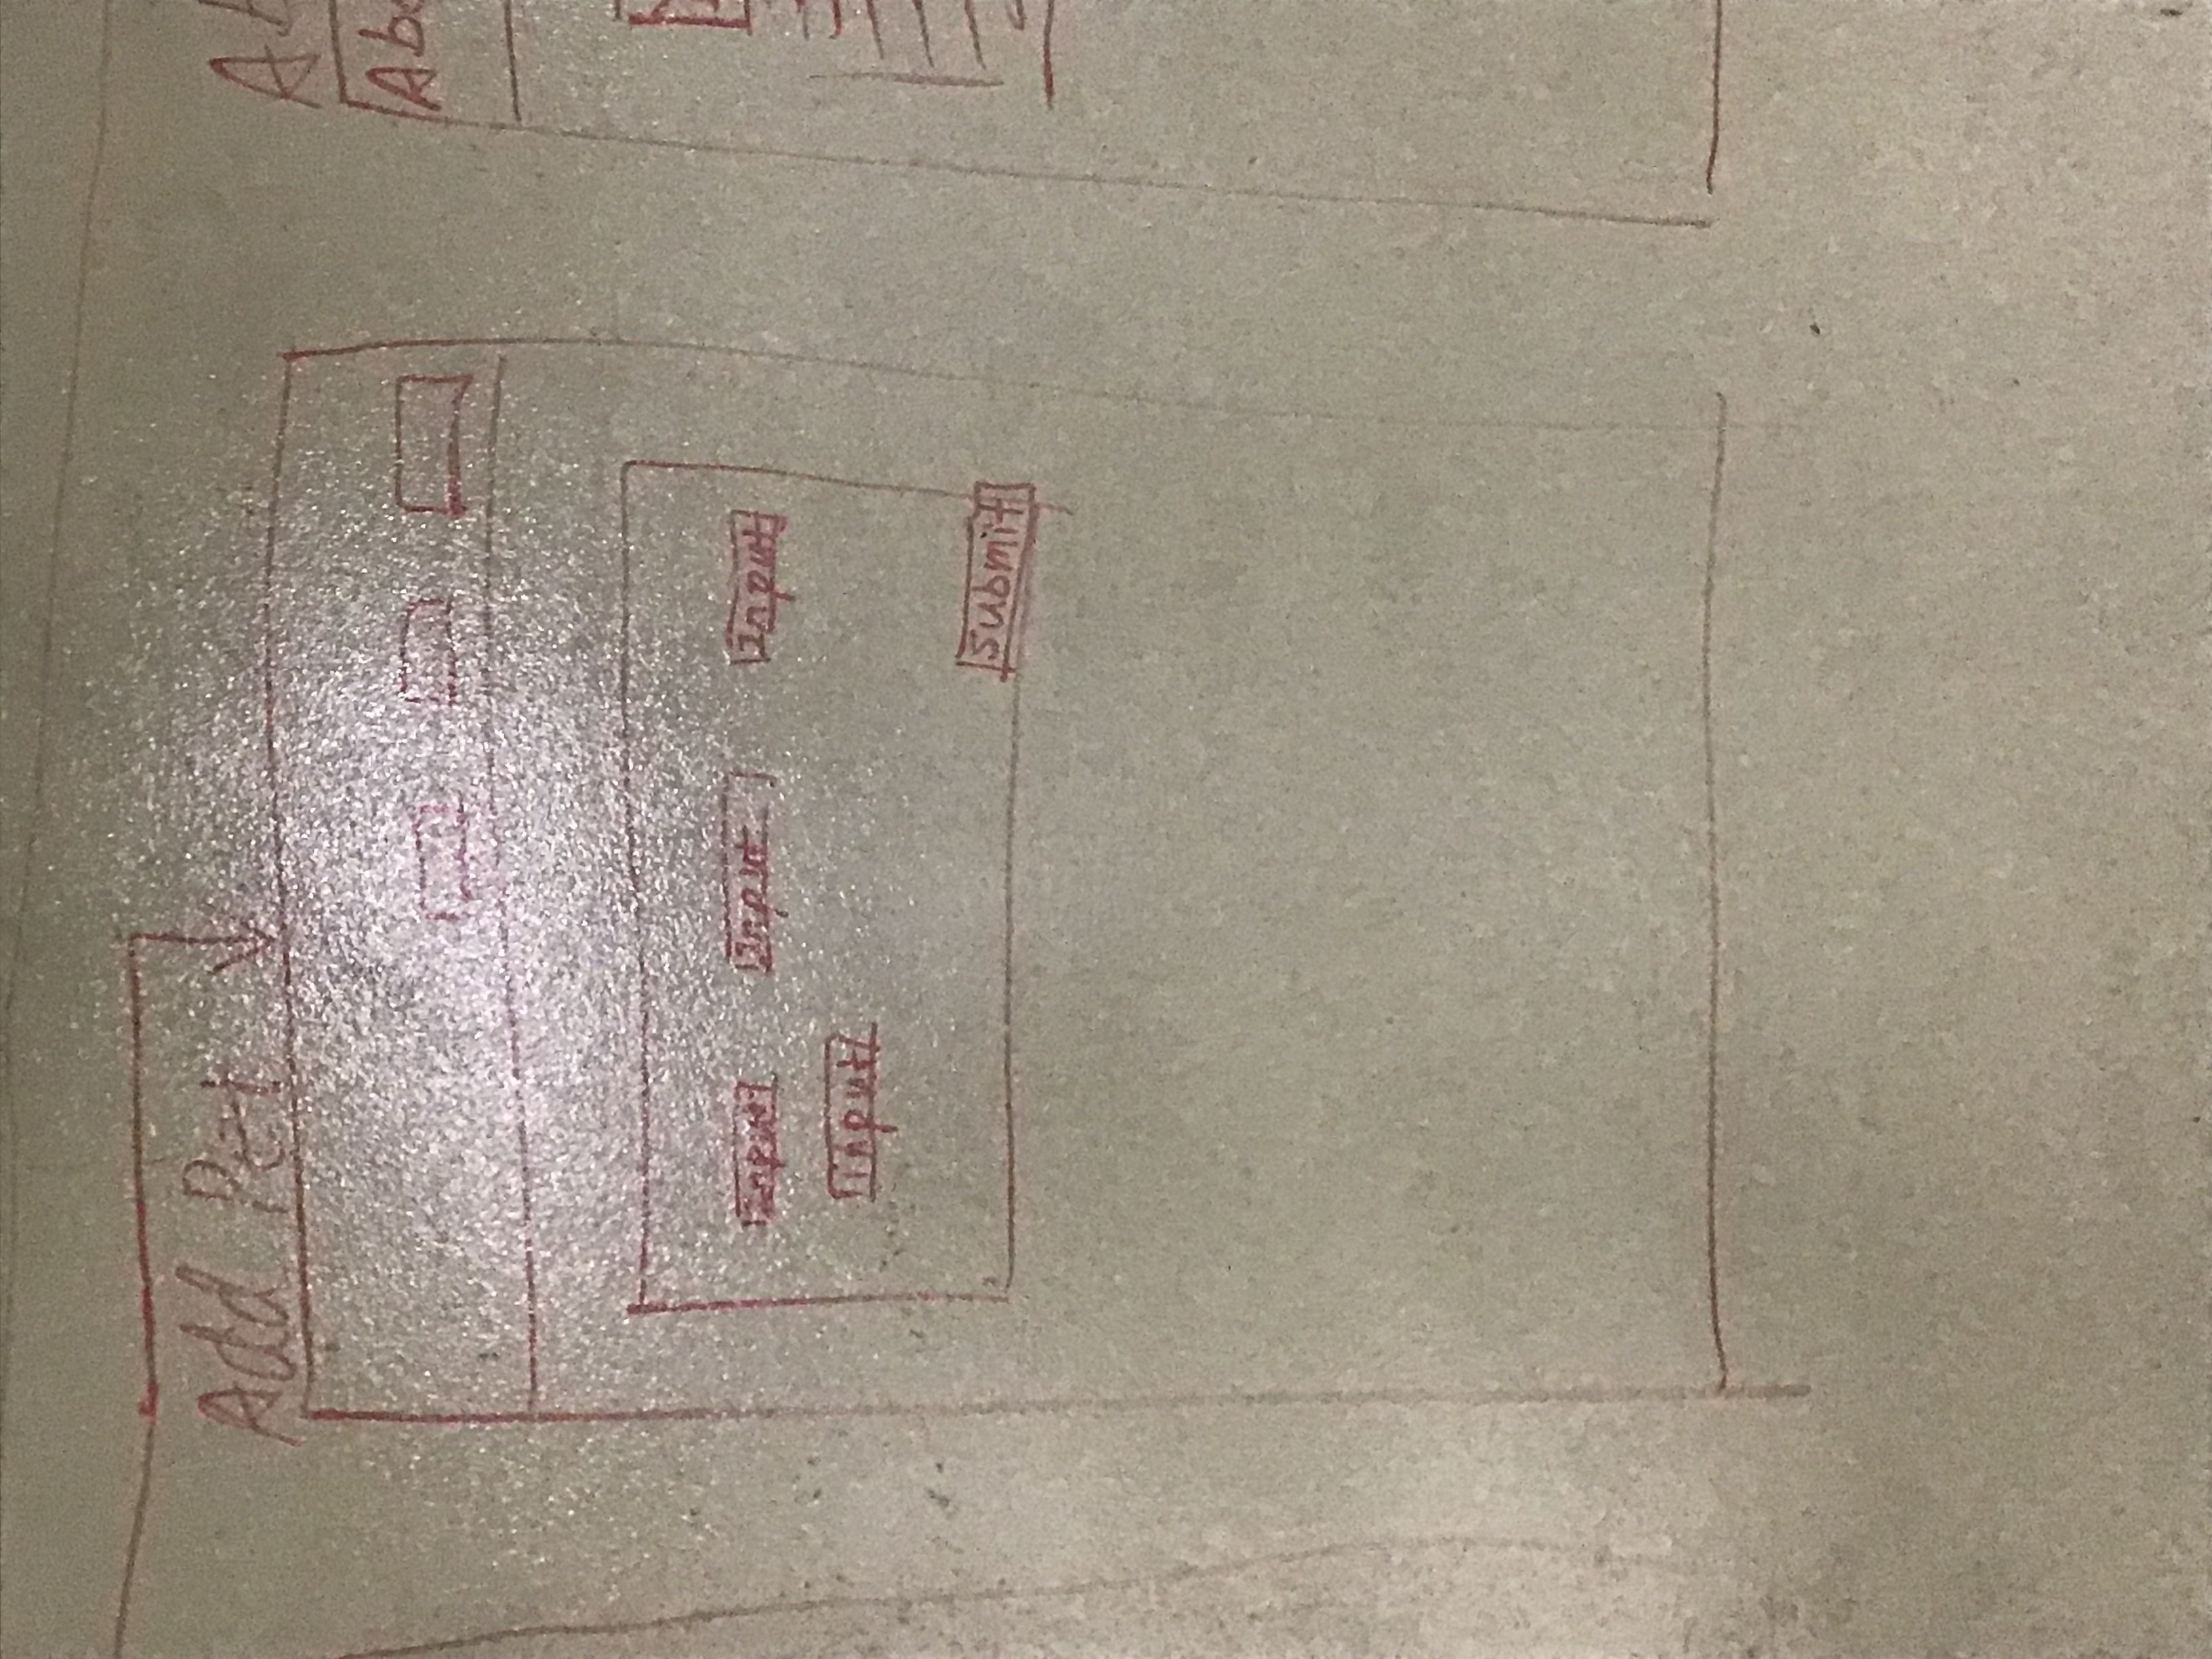 Add Pet
Input Input Input
input
Submit